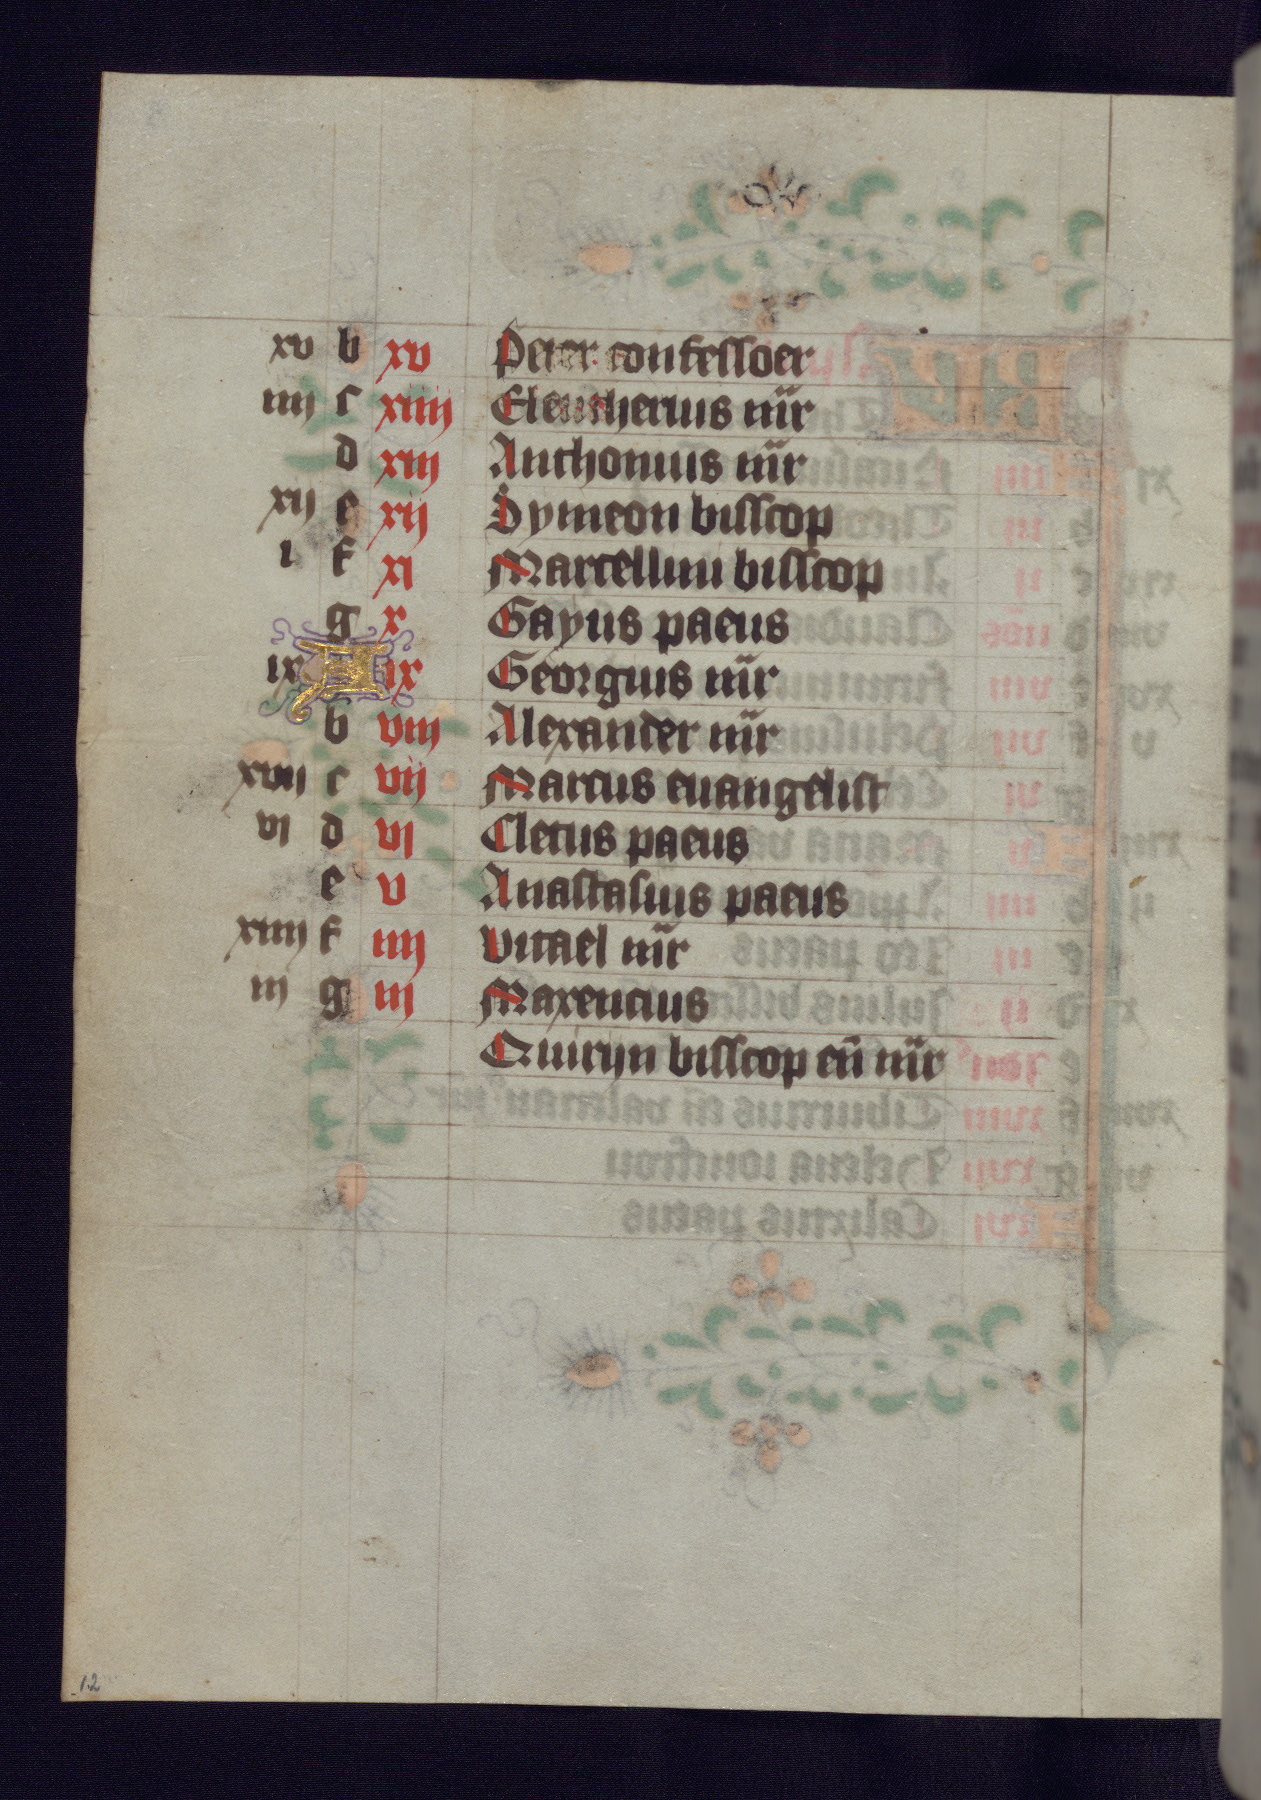 xv b xv Peter confessoer
iiij c xiiij Eleutherius mr̄
d xiij Anthonius mr̄
xij e xij Symeon bisscop
i f xi Marcellijn bisscop
g x Gayus paeus
ix A ix Georgius mr̄
b viij Alexander mr̄
xvij c vij Marcus euangelist
vi d vi Cletus paeus
e v Anastasius paeus
xiiij f iiij Vitael mr̄
iij g iij Maxencius
Quirijn bisscop eñ mr̄
12